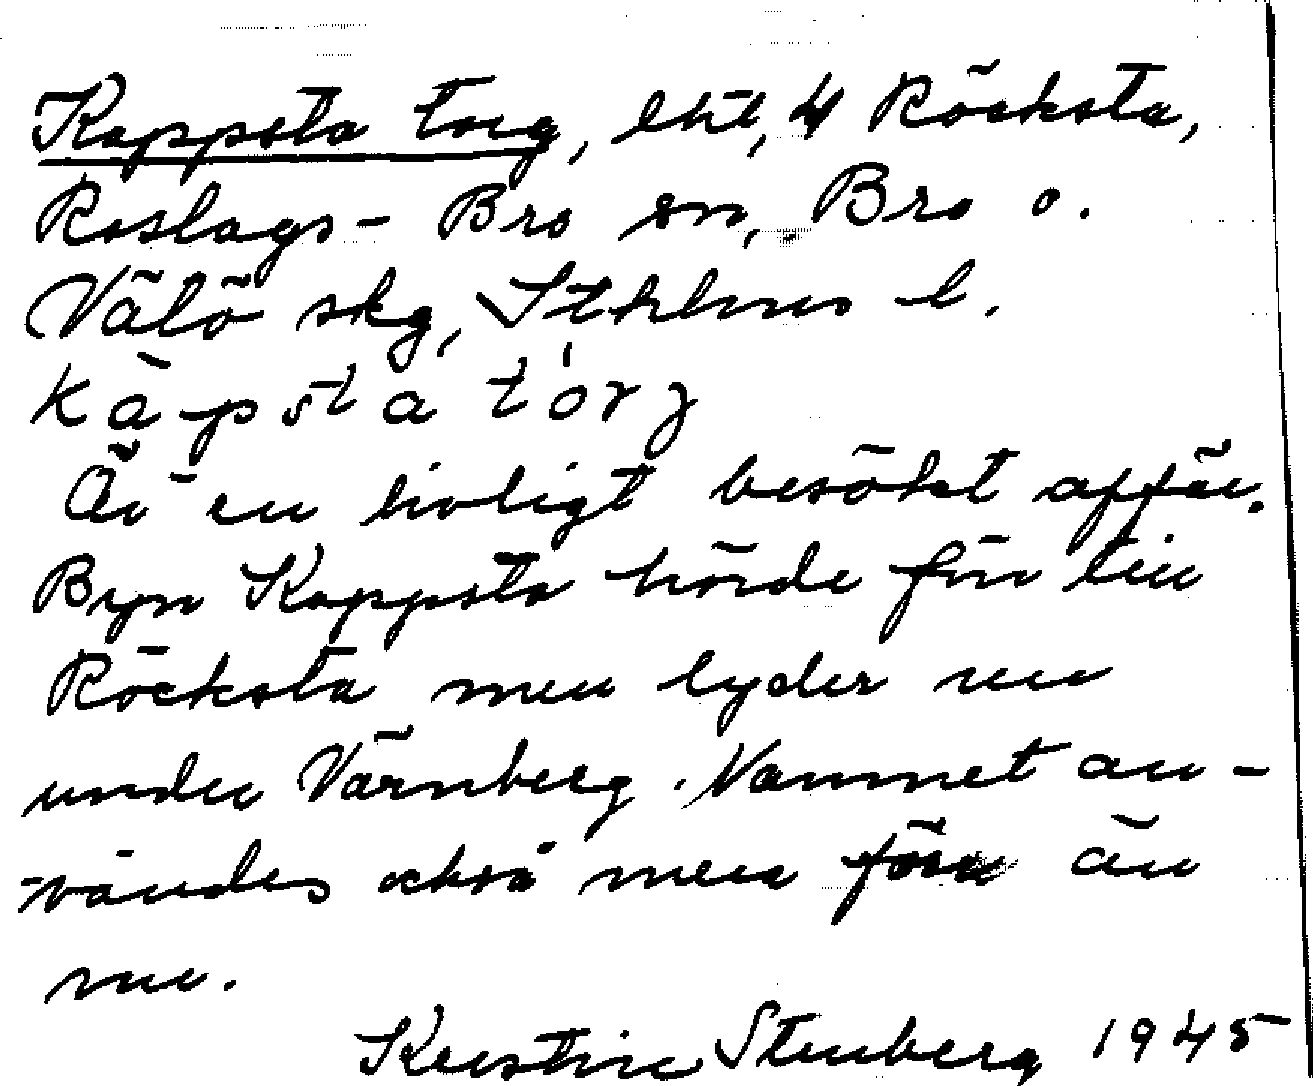 Kappsta torg, lht, 4 Röcksta,
Roslags-Bro sn, Bro o.
Vätö skg, Sthlms l.
kàpsta tórj
Är en livligt besökt affär.
Byn Kappsta hörde förr till
Röcksta men lyder nu
under Värnberg. Namnet an-
vändes också mera förr än
nu.
Kerstin Stenberg 1945